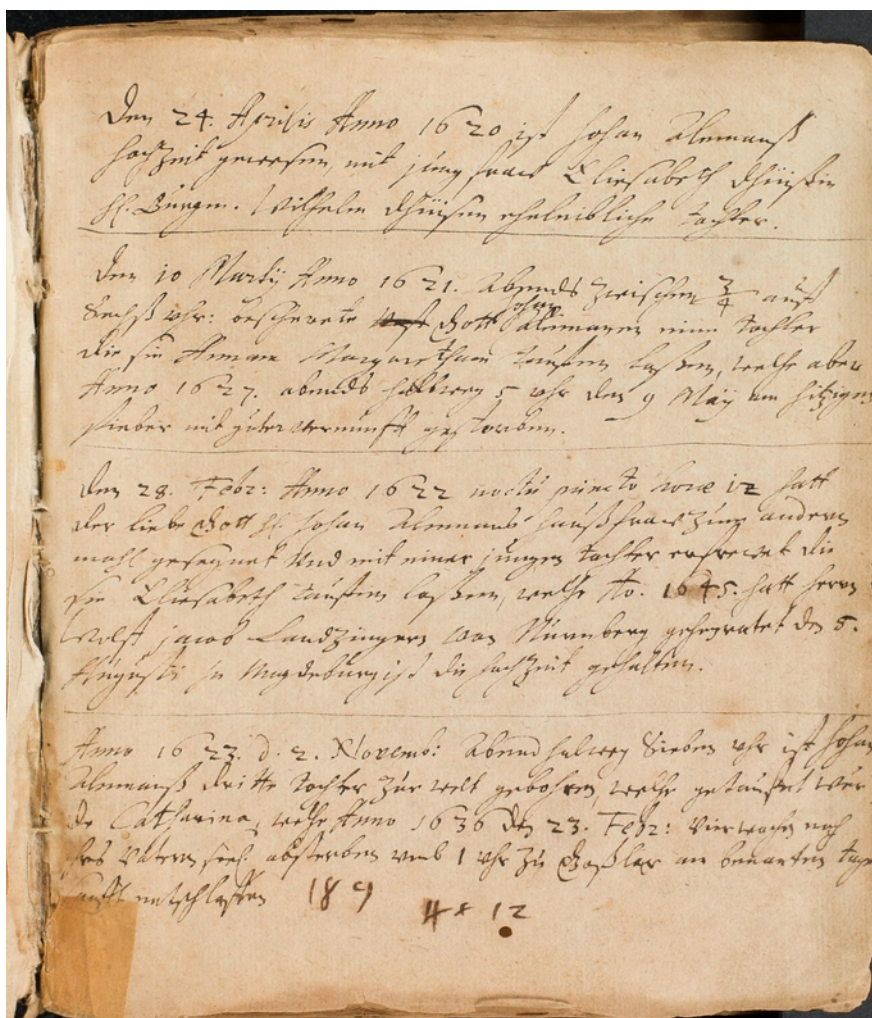 Den 24. Aprilis Anno 1620 ist Johan Alemanß
Hochzeit gewesen, mit Jungfraw Eliesabeth
H. Burgm. Wilhelm eheleibliche Tochter.
Den 10 Martÿ Anno 1621. Abends zwischen 3/4 auff
Sechß Uhr: bescherete Gott Johan Alemannen eine Tochter
die sie Annam Margaretham tauffen laßen, welche aber
Anno 1627. abends halbweg 5 Uhr den 9 Maÿ am hitzigen
fieber mit guter vernunfft gestorben.
Den 28. Febr: Anno 1622 noctu puncto horæ 12 hatt
der liebe Gott H. Johan Alemans haußfraw zum andern
mahl gesegnet Und mit einer jungen tochter erfrewet die
sie Eliesabeth tauffen laßen, welche Ao. 1645. hatt herrn
Wolff Jacob Landzingern von Nürnberg geheyratet den 5.
Augusti in Magdeburg ist die hochzeit gehalten.
Anno 1623. d. 2. Novemb: Abend halweg Sieben Uhr ist Johan
Alemanß dritte Tochter zur welt gebohren, welche getauffet wur
de Catharina, welche Anno 1636 den 23. Febr: Vier wochen nach
ihres Vatern seel. absterben umb 1 Uhr zu Goßlar an benanten tage
sanfft entschlaffen 189
4 * 12